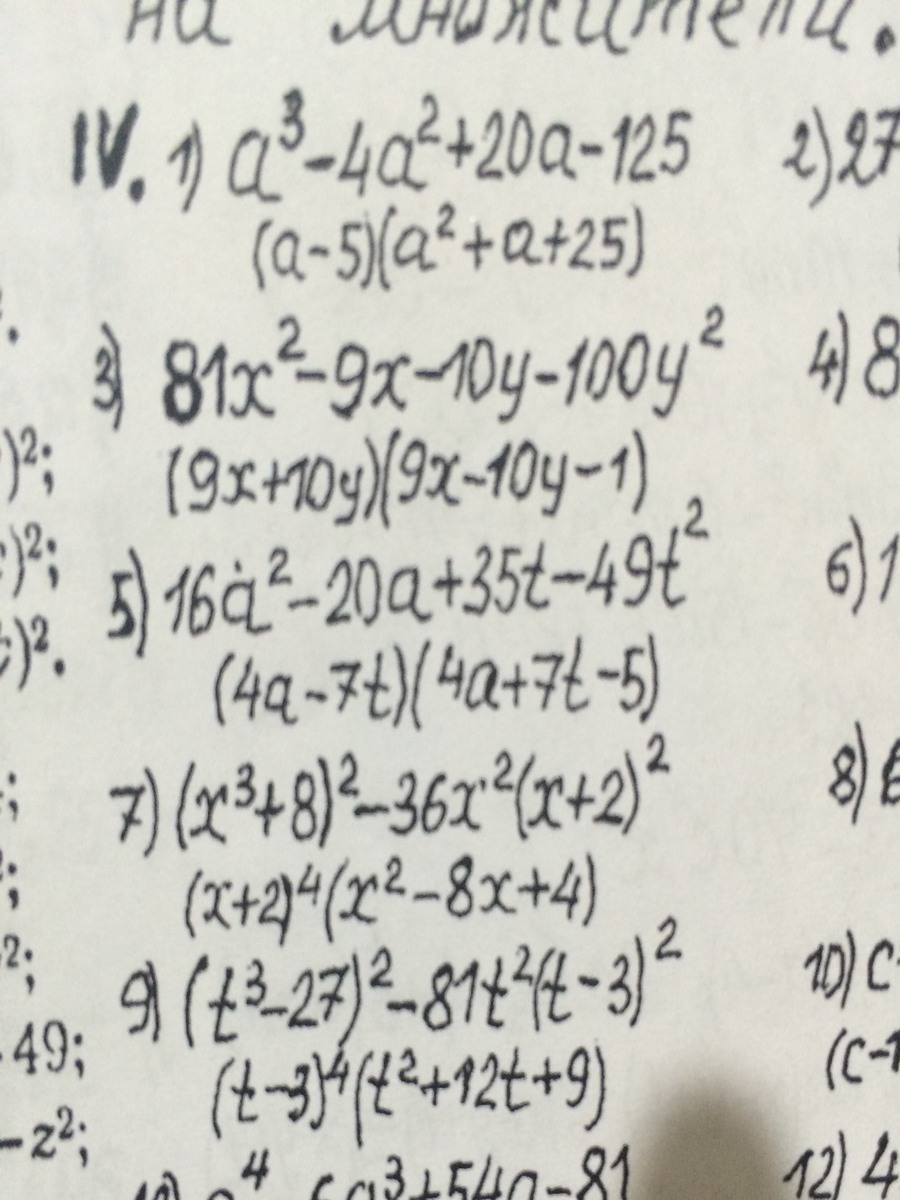 на множители.
IV. 1) a³-4a²+20a-125 2) 27
(a-5)(a²+a+25)
3) 81x²-9x-10y-100y² 4) 8
(9x+10y)(9x-10y-1)
)²;
5) 16a²-20a+35t-49t² 6) 1
)²;
(4a-7t)(4a+7t-5)
)².
7) (x³+8)²-36x²(x+2)² 8)
;
(x+2)⁴(x²-8x+4)
;
9) (t³-27)²-81t²(t-3)² 10) c
²;
(t-3)⁴(t²+12t+9) (c-1
49;
-z²;
a⁴ 6a³+54a-81 12) 4